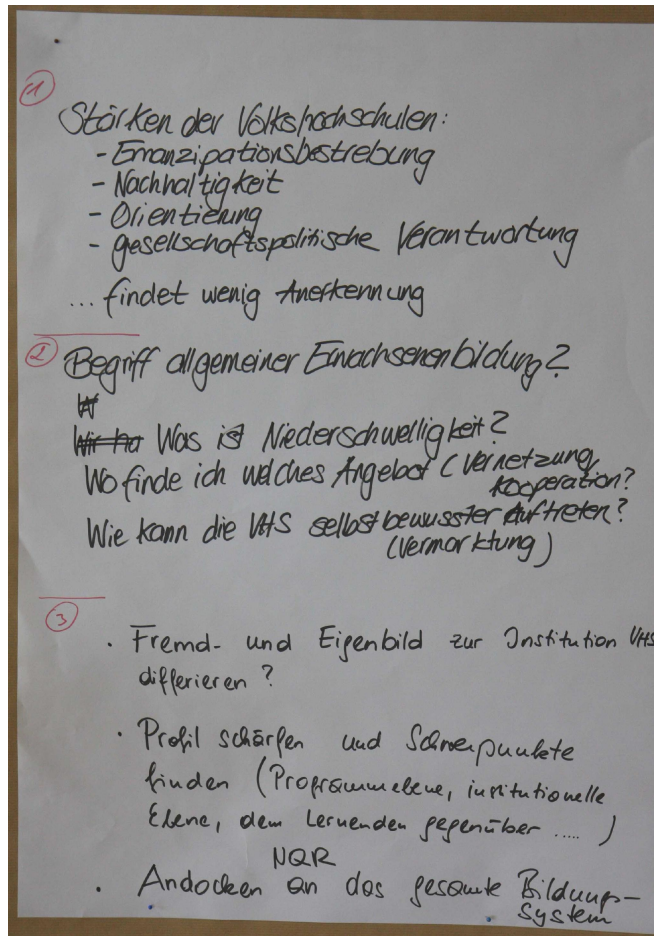 1
Stärken der Volkshochschulen:
- Emanzipationsbestrebung
- Nachhaltigkeit
- Orientierung
- gesellschaftspolitische Verantwortung
... findet wenig Anerkennung
2
Begriff allgemeiner Erwachsenenbildung?
W
Wir ha Was ist Niederschwelligkeit?
Wo finde ich welches Angebot (Vernetzung,
Kooperation?
Wie kann die VHS selbstbewusster Auftreten?
(Vermarktung)
3
· Fremd- und Eigenbild zur Institution VHS
differieren?
· Profil schärfen und Schwerpunkte
finden (Programmebene, institutionelle
Ebene, dem Lernenden gegenüber .....)
NQR
· Andocken an das gesamte Bildungs-
system